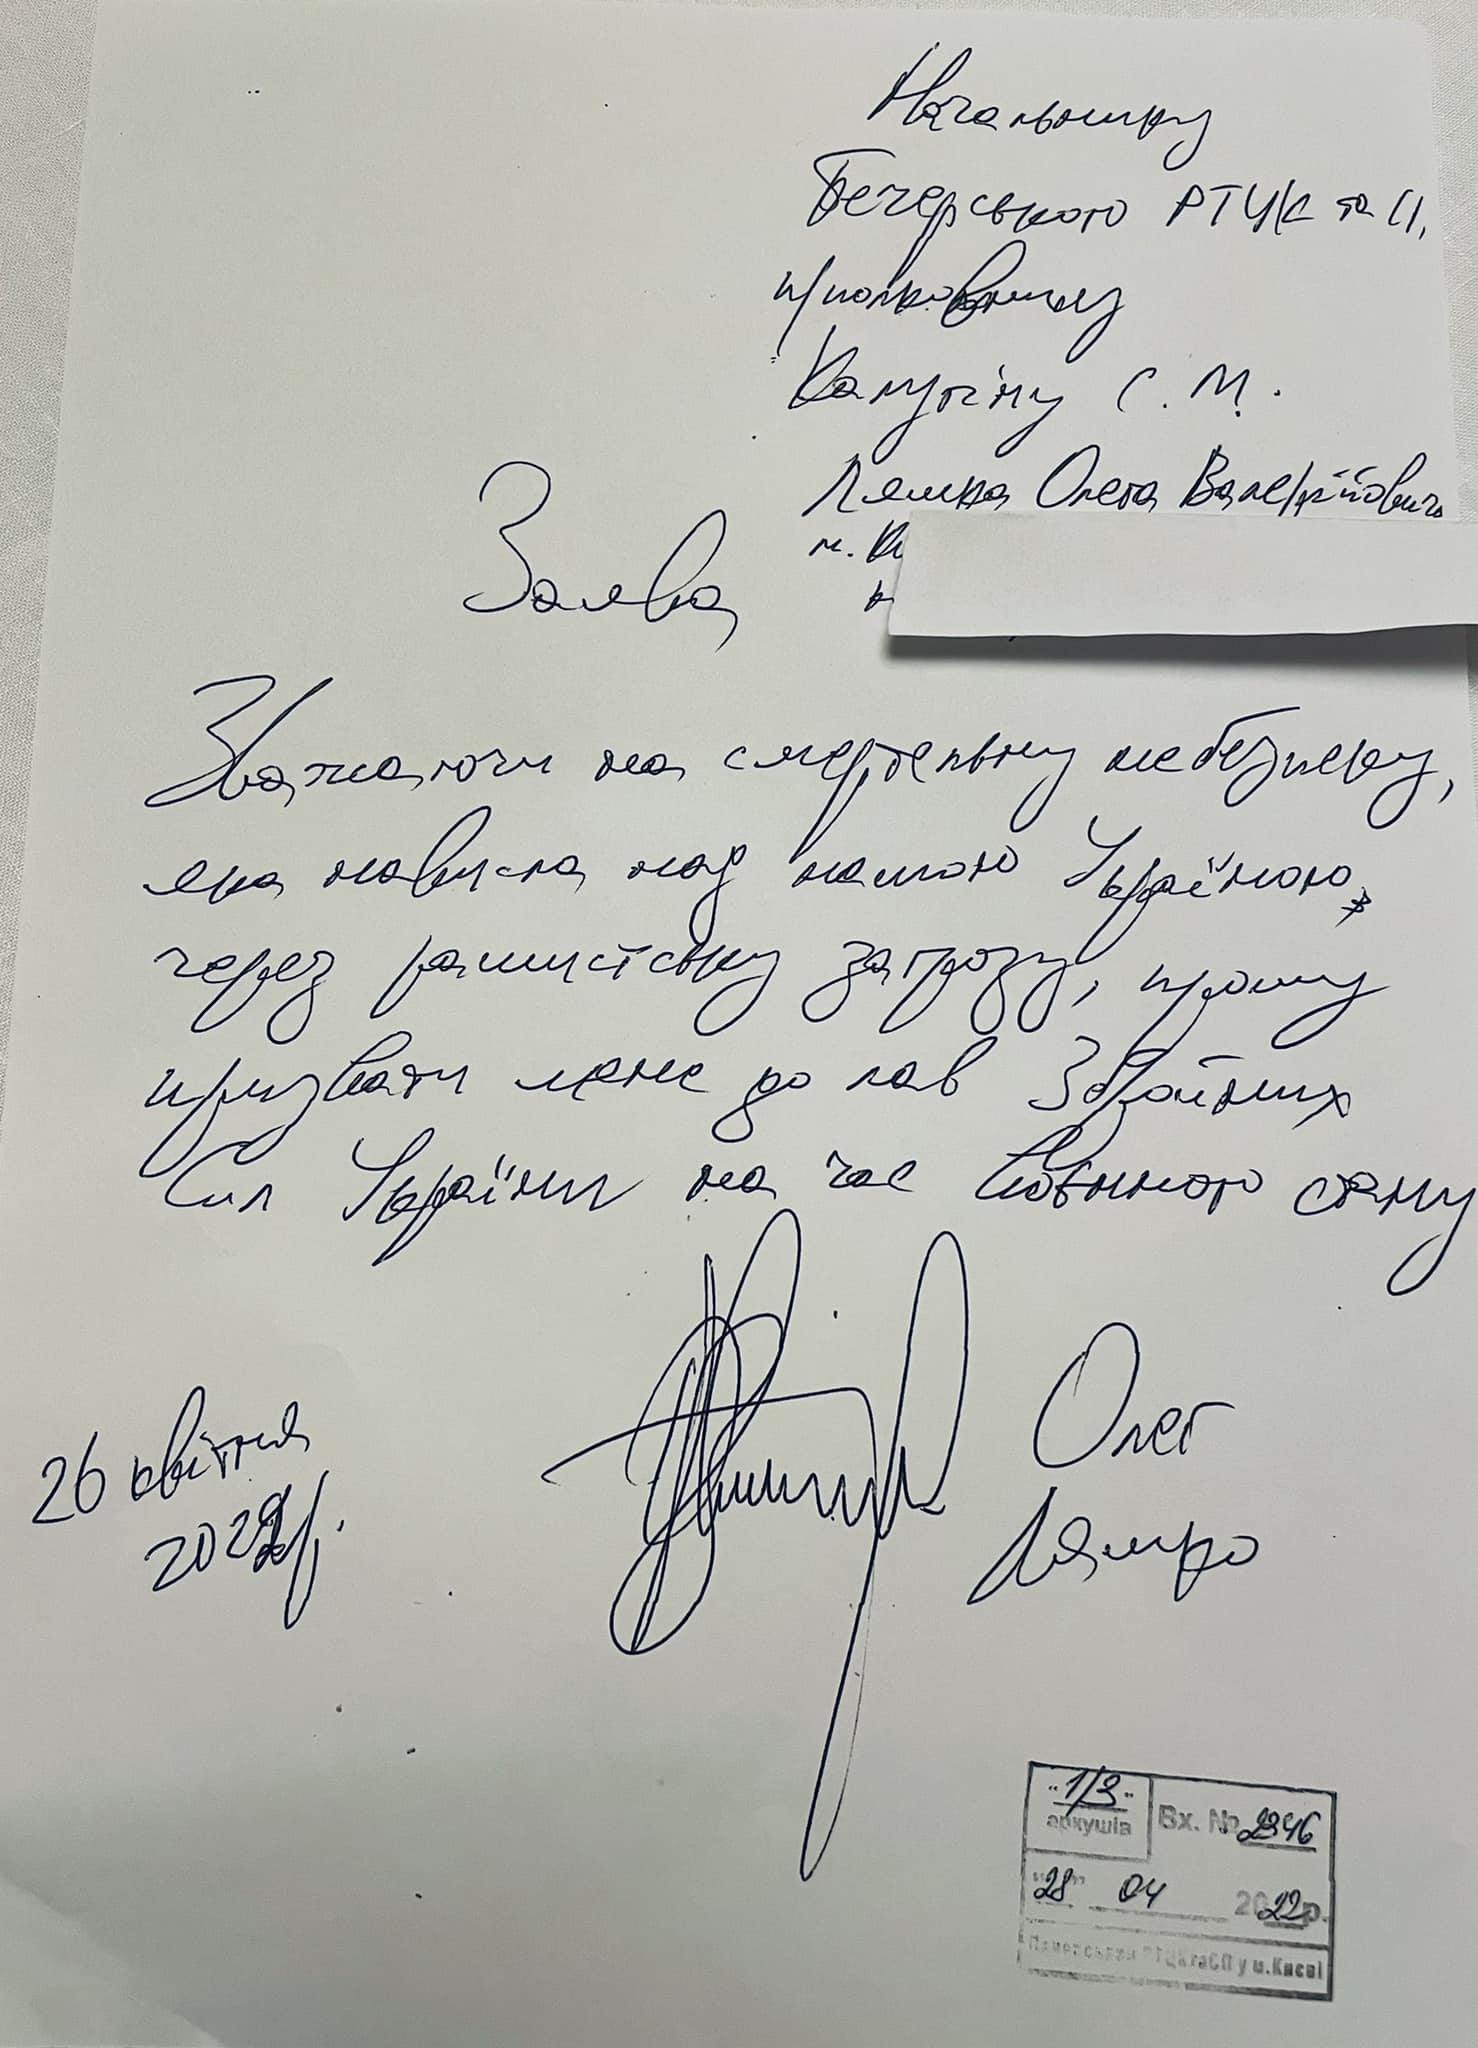 Начальнику
Печерського РТЦК та СП
п/полковнику
Калугіну С. М.
Ляшка Олега Валерійовича
м. К
Заява
Зважаючи на смертельну небезпеку,
яка нависла над нашою Україною
через рашистську загрозу, прошу
призвати мене до лав Збройних
Сил України на час воєнного стану
26 квітня
2022р.
Олег
Ляшко
"1/3" аркушів
Вх. № 2346
"28" 04 2022р.
Печерський РТЦКтаСП у м.Києві